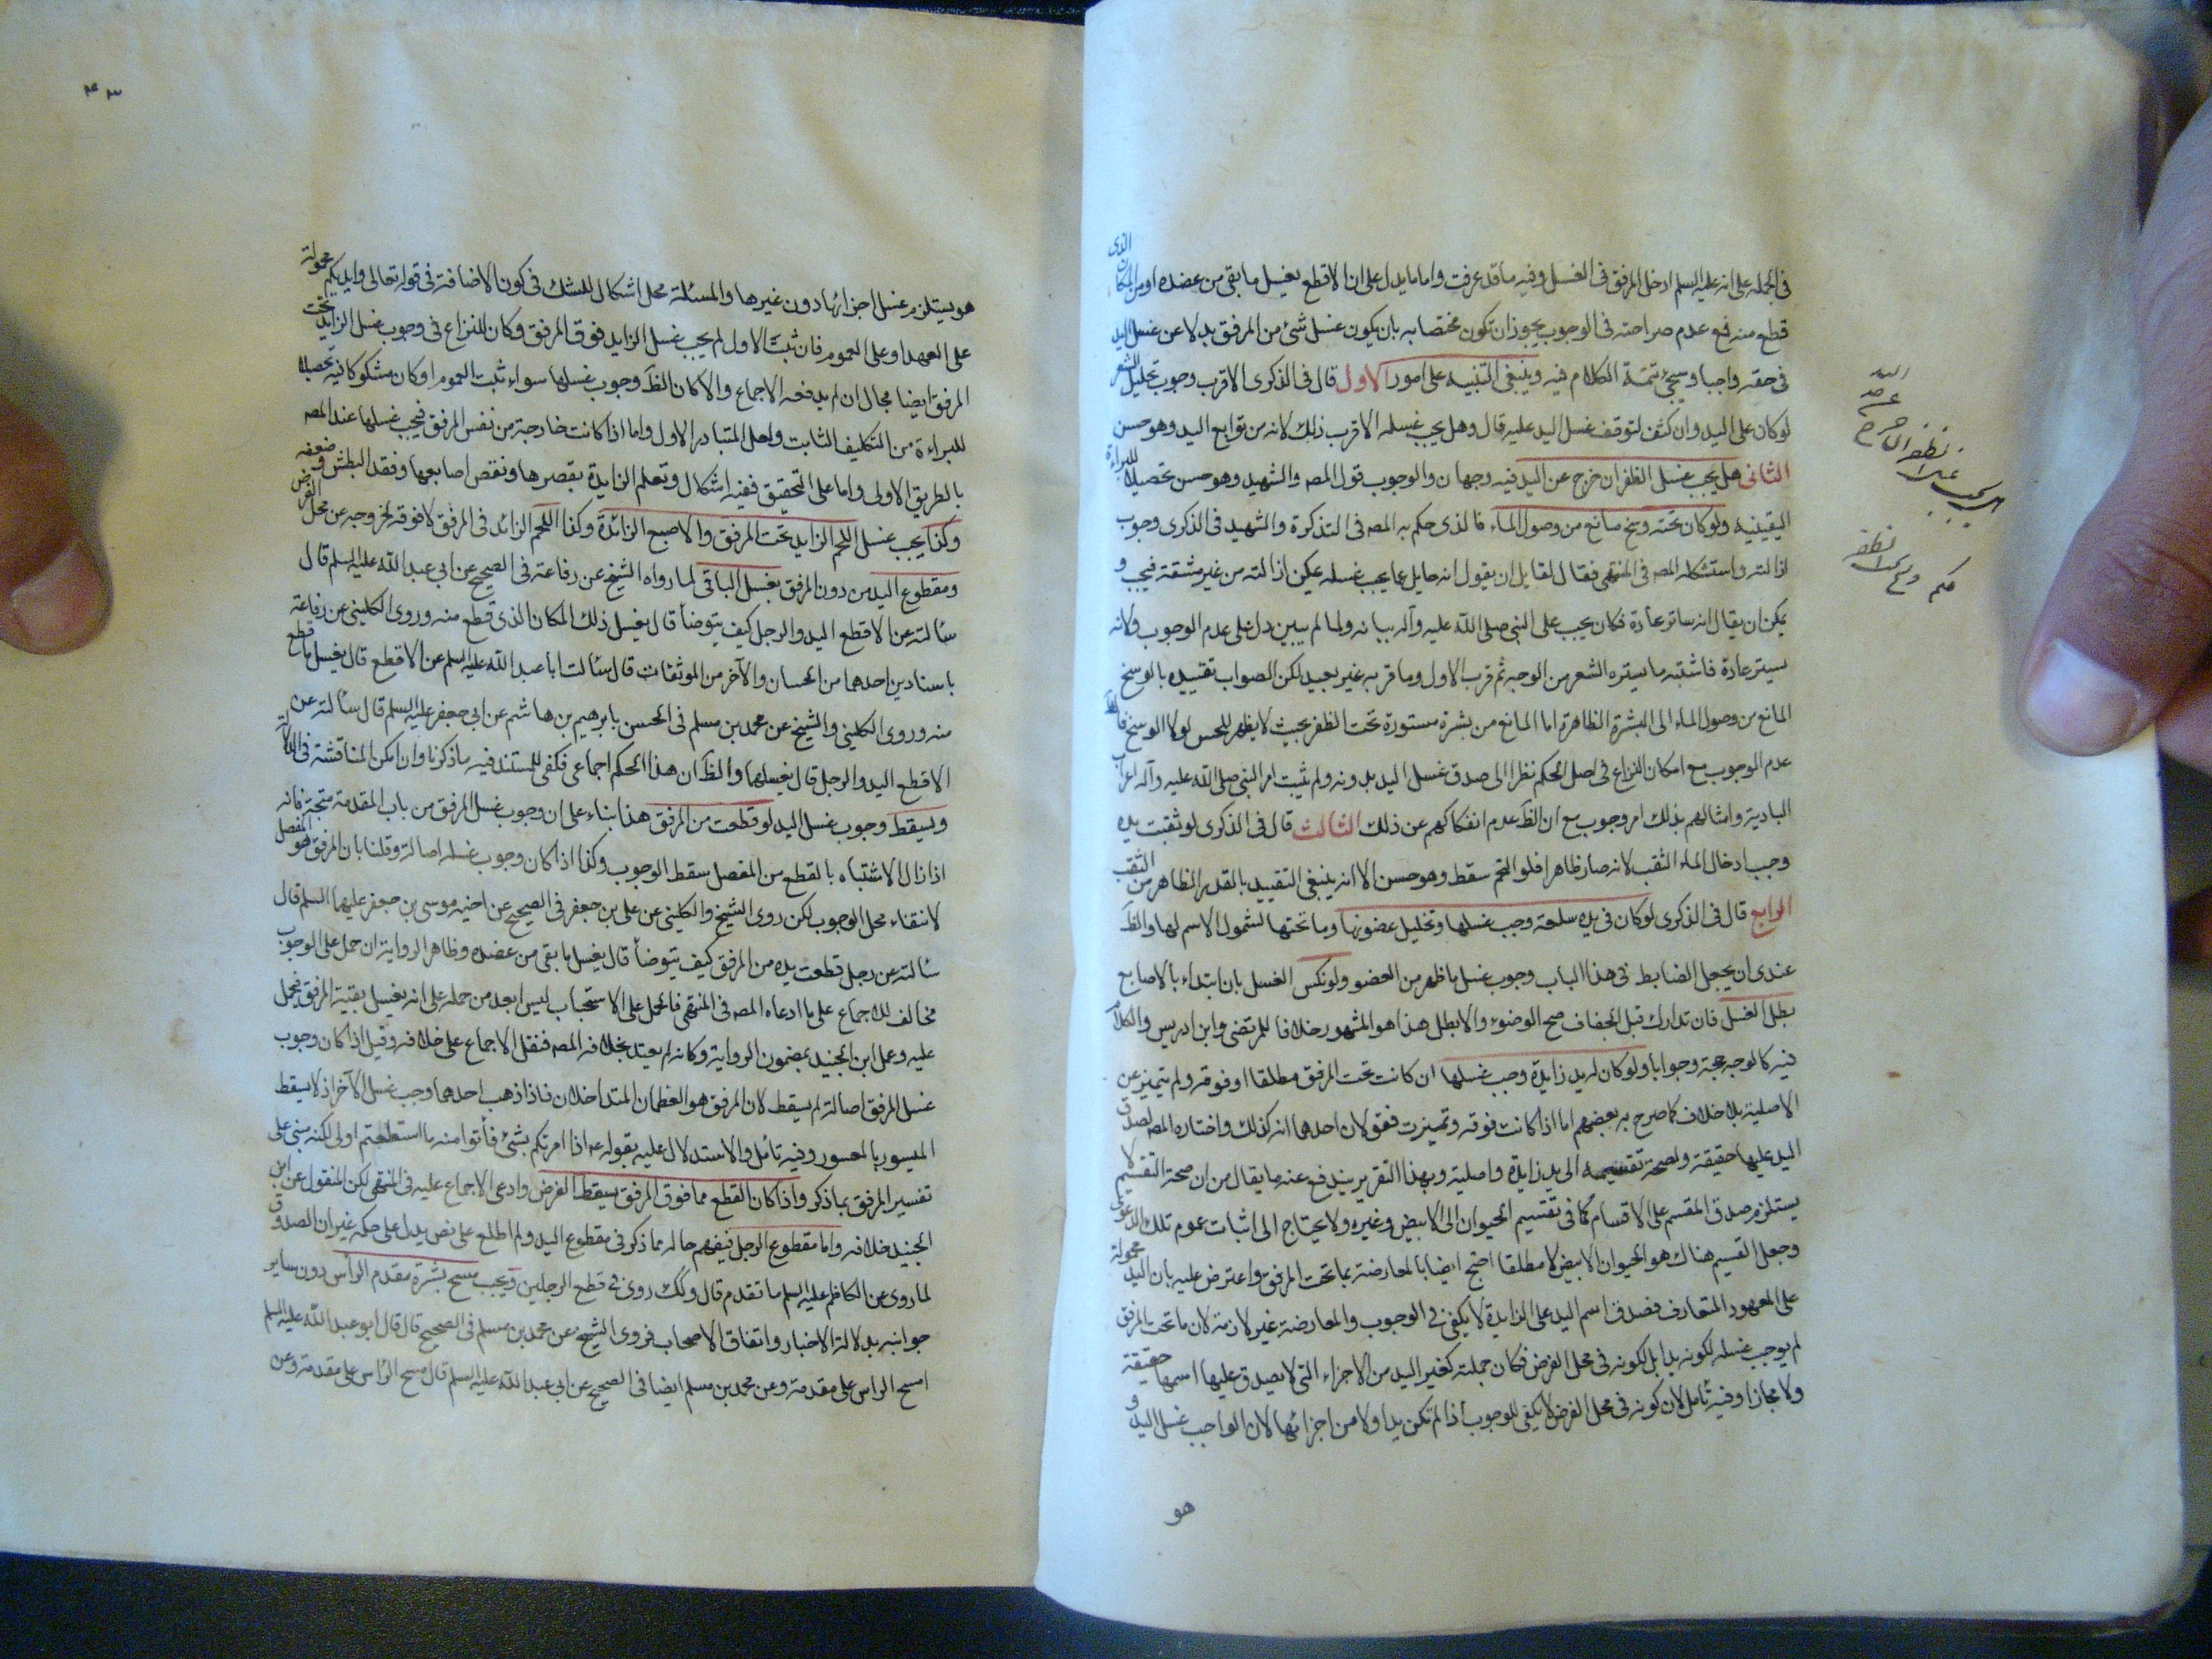 في الجملة على انه عليه السلم ادخل المرفق في الغسل وفيه ما قد عرفت واما ما يدل على ان الاقطع يغسل ما بقى من عضده او من المكان الذى
قطع منه فمع عدم صراحته في الوجوب يجوز ان تكون مختصا به بان يكون غسل شئ من المرفق بدلا عن غسل اليد
في حقه واجبا وسيجئ تتمة الكلام فيه وينبغي التنبيه على امور الاول قال في الذكرى الاقرب وجوب تخليل الشعر
لو كان على اليد وان كثف لتوقف غسل اليد عليه قال وهل يجب غسله الاقرب ذلك لانه من توابع اليد وهو حسن
الثانى هل يجب غسل الظفر ان خرج عن اليد فيه وجهان والوجوب قول المصه والشهيد وهو حسن تحصيلا للبراءة
اليقينية ولو كان تحته وسخ مانع من وصول الماء فالذى حكم به المصه في التذكرة والشهيد في الذكرى وجوب
ازالته واستشكله المصه في المنتهى فقال لقايل ان يقول انه حايل عما يجب غسله يمكن ازالته من غير مشقة فيجب و
يمكن ان يقال انه ساتر عادة فكان يجب على النبي صلى الله عليه وآله بيانه ولما لم يبين دل على عدم الوجوب ولانه
يستر عادة فاشبه ما يستره الشعر من الوجه ثم قرب الاول وما قربه غير بعيد لكن الصواب تقييده بالوسخ
المانع من وصول الماء الى البشرة الظاهرة اما المانع من بشرة مستورة تحت الظفر بحيث لا يظهر للحس لولا الوسخ فالظ
عدم الوجوب مع امكان النزاع في اصل الحكم نظرا الى صدق غسل اليد بدونه ولم يثبت امر النبي صلى الله عليه وآله اعراب
البادية وامثالهم بذلك امر وجوب مع ان الظ عدم انفكاكهم عن ذلك الثالث قال في الذكرى لو ثقبت يده
وجب ادخال الماء الثقب لانه صار ظاهرا فلو التحم سقط وهو حسن الا انه ينبغي التقييد بالقدر الظاهر من الثقب
الرابع قال في الذكرى لو كان في يده سلعة وجب غسلها وتخليل غضونها وما تحتها لشمول الاسم لها والظ
عندى ان يجعل الضابط في هذا الباب وجوب غسل ما ظهر من العضو ولو نكس الغسل بان ابتداء بالاصابع
بطل الغسل فان تدارك قبل الجفاف صح الوضوء والا بطل هذا هو المشهور خلافا للمرتضى وابن ادريس والكلام
فيه كالوجه حجة وجوابا ولو كان له يد زايدة وجب غسلها ان كانت تحت المرفق مطلقا او فوقه ولم يتميز عن
الاصلية بلا خلاف كما صرح به بعضهم اما اذا كانت فوقه وتميزت فقولان احدهما انه كذلك واختاره المصه لصدق
اليد عليها حقيقة ولصحة تقسيمه الى يد زايدة واصلية وبهذا التقرير يندفع عنه ما يقال من ان صحة التقسيم لا
يستلزم صدق المقسم على الاقسام كما في تقسيم الحيوان الى الابيض وغيره ولا يحتاج الى اثبات عموم تلك الدعوى
وجعل القسيم هناك هو الحيوان الابيض لا مطلقا احتج ايضا بالمعارضة بما تحت المرفق واعترض عليه بان اليد محمولة
على المعهود المتعارف فصدق اسم اليد على الزايدة لا يكفي في الوجوب والمعارضة غير لازمة لان ما تحت المرفق
لم يوجب غسله لكونه يدا بل لكونه في محل الفرض فكان جملته كغير اليد من الاجزاء التى لا يصدق عليها اسمها حقيقة
ولا مجازا وفيه تأمل لان كونه في محل الفرض لا يكفي للوجوب اذا لم تكن يدا ولا من اجزائها لان الواجب غسل اليد و
هو
٤٣
هو يستلزم غسل اجزائها دون غيرها والمسئلة محل اشكال للشك في كون الاضافة في قوله تعالى وايديكم محمولة
على العهد او على العموم فان ثبت الاول لم يجب غسل الزايد فوق المرفق وكان للنزاع في وجوب غسل الزايد تحت
المرفق ايضا مجال ان لم يدفعه الاجماع والا كان الظ وجوب غسلها سواء ثبت العموم او كان مشكوكا فيه تحصيلا
للبراءة من التكليف الثابت ولعل المتبادر الاول واما اذا كانت خارجة من نفس المرفق فيجب غسلها عند المصه
بالطريق الاولى واما على التحقيق ففيه اشكال وتعلم الزايدة بقصرها ونقص اصابعها وفقد البطش وضعفه
وكذا يجب غسل اللحم الزايد تحت المرفق والاصبع الزائدة وكذا اللحم الزائد في المرفق لا فوقه لخروجه عن محل الفرض
ومقطوع اليد من دون المرفق يغسل الباقى لما رواه الشيخ عن رفاعة في الصحيح عن ابى عبد الله عليه السلم قال
سألته عن الاقطع اليد والرجل كيف يتوضأ قال يغسل ذلك المكان الذى قطع منه وروى الكلينى عن رفاعة
باسنادين احدهما من الحسان والآخر من الموثقات قال سألت ابا عبد الله عليه السلم عن الاقطع قال يغسل ما قطع
منه وروى الكلينى والشيخ عن محمد بن مسلم في الحسن بابرهيم بن هاشم عن ابى جعفر عليه السلم قال سألته عن
الاقطع اليد والرجل قال يغسلهما والظ ان هذا الحكم اجماعى فكفى للمستند فيه ما ذكرنا وان امكن المناقشة في الدلالة
ويسقط وجوب غسل اليد لو قطعت من المرفق هذا بناء على ان وجوب غسل المرفق من باب المقدمة متجه فانه
اذا زال الاشتباه بالقطع من المفصل سقط الوجوب وكذا اذا كان وجوب غسله اصالة وقلنا بان المرفق هو المفصل
لانتفاء محل الوجوب لكن روى الشيخ والكلينى عن على بن جعفر في الصحيح عن اخيه موسى بن جعفر عليهما السلم قال
سألته عن رجل قطعت يده من المرفق كيف يتوضأ قال يغسل ما بقى من عضده وظاهر الرواية ان حمل على الوجوب
مخالف للاجماع على ما ادعاه المصه في المنتهى فالحمل على الاستحباب ليس ابعد من حمله على انه يغسل بقية المرفق فيحمل
عليه وعمل ابن الجنيد بمضمون الرواية وكانه لم يعتد بخلافه المصه فنقل الاجماع على خلافه وقيل اذا كان وجوب
غسل المرفق اصالة لم يسقط لان المرفق هو العظمان المتداخلان فاذا ذهب احدهما وجب غسل الآخر اذ لا يسقط
الميسور بالمعسور وفيه تأمل والاستدلال عليه بقوله عه اذا امرتكم بشئ فأتوا منه ما استطعتم اولى لكنه مبنى على
تفسير المرفق بما ذكر واذا كان القطع مما فوق المرفق يسقط الفرض وادعى الاجماع عليه في المنتهى لكن المنقول عن ابن
الجنيد خلافه واما مقطوع الرجل فيفهم حاله مما ذكر في مقطوع اليد ولم اطلع على نص يدل على حكمه غير ان الصدوق
لما روى عن الكاظم عليه السلم ما تقدم قال وكك روى في قطع الرجلين ويجب مسح بشرة مقدم الرأس دون ساير
جوانبه بدلالة الاخبار واتفاق الاصحاب فروى الشيخ عن محمد بن مسلم في الصحيح قال قال ابو عبد الله عليه السلم
امسح الراس على مقدمه وعن محمد بن مسلم ايضا في الصحيح عن ابى عبد الله عليه السلم قال مسح الرأس على مقدمه وعن